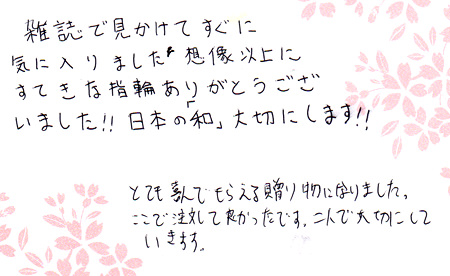 雑誌で見かけてすぐに
気に入りました 想像以上に
すてきな指輪ありがとうござ
いました!! 日本の「和」大切にします!!
とても喜んでもらえる贈り物になりました。
ここで注文して良かったです。二人で大切にして
いきます。